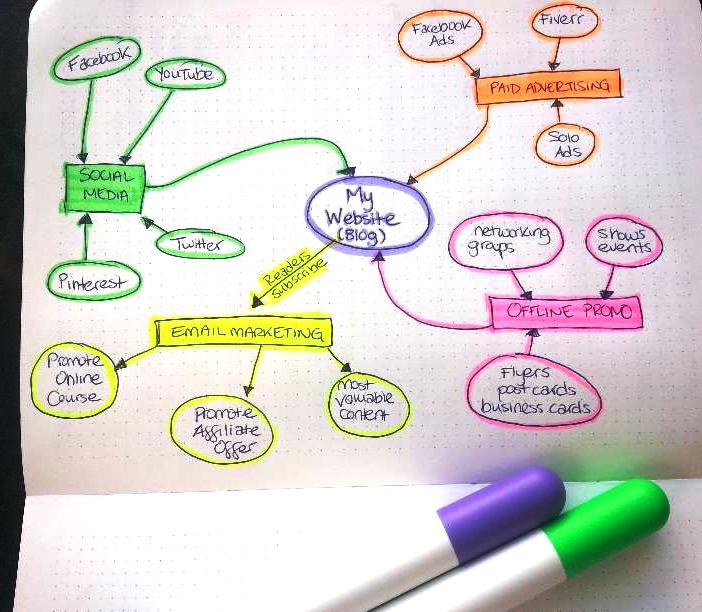 Facebook
YouTube
SOCIAL
MEDIA
Twitter
Pinterest
Facebook
Ads
Fiverr
PAID ADVERTISING
Solo
Ads
My
Website
(Blog)
Readers
Subscribe
networking
groups
shows
events
OFFLINE PROMO
Flyers
post cards
business cards
EMAIL MARKETING
Promote
Online
Course
Promote
Affiliate
Offer
most
valuable
content